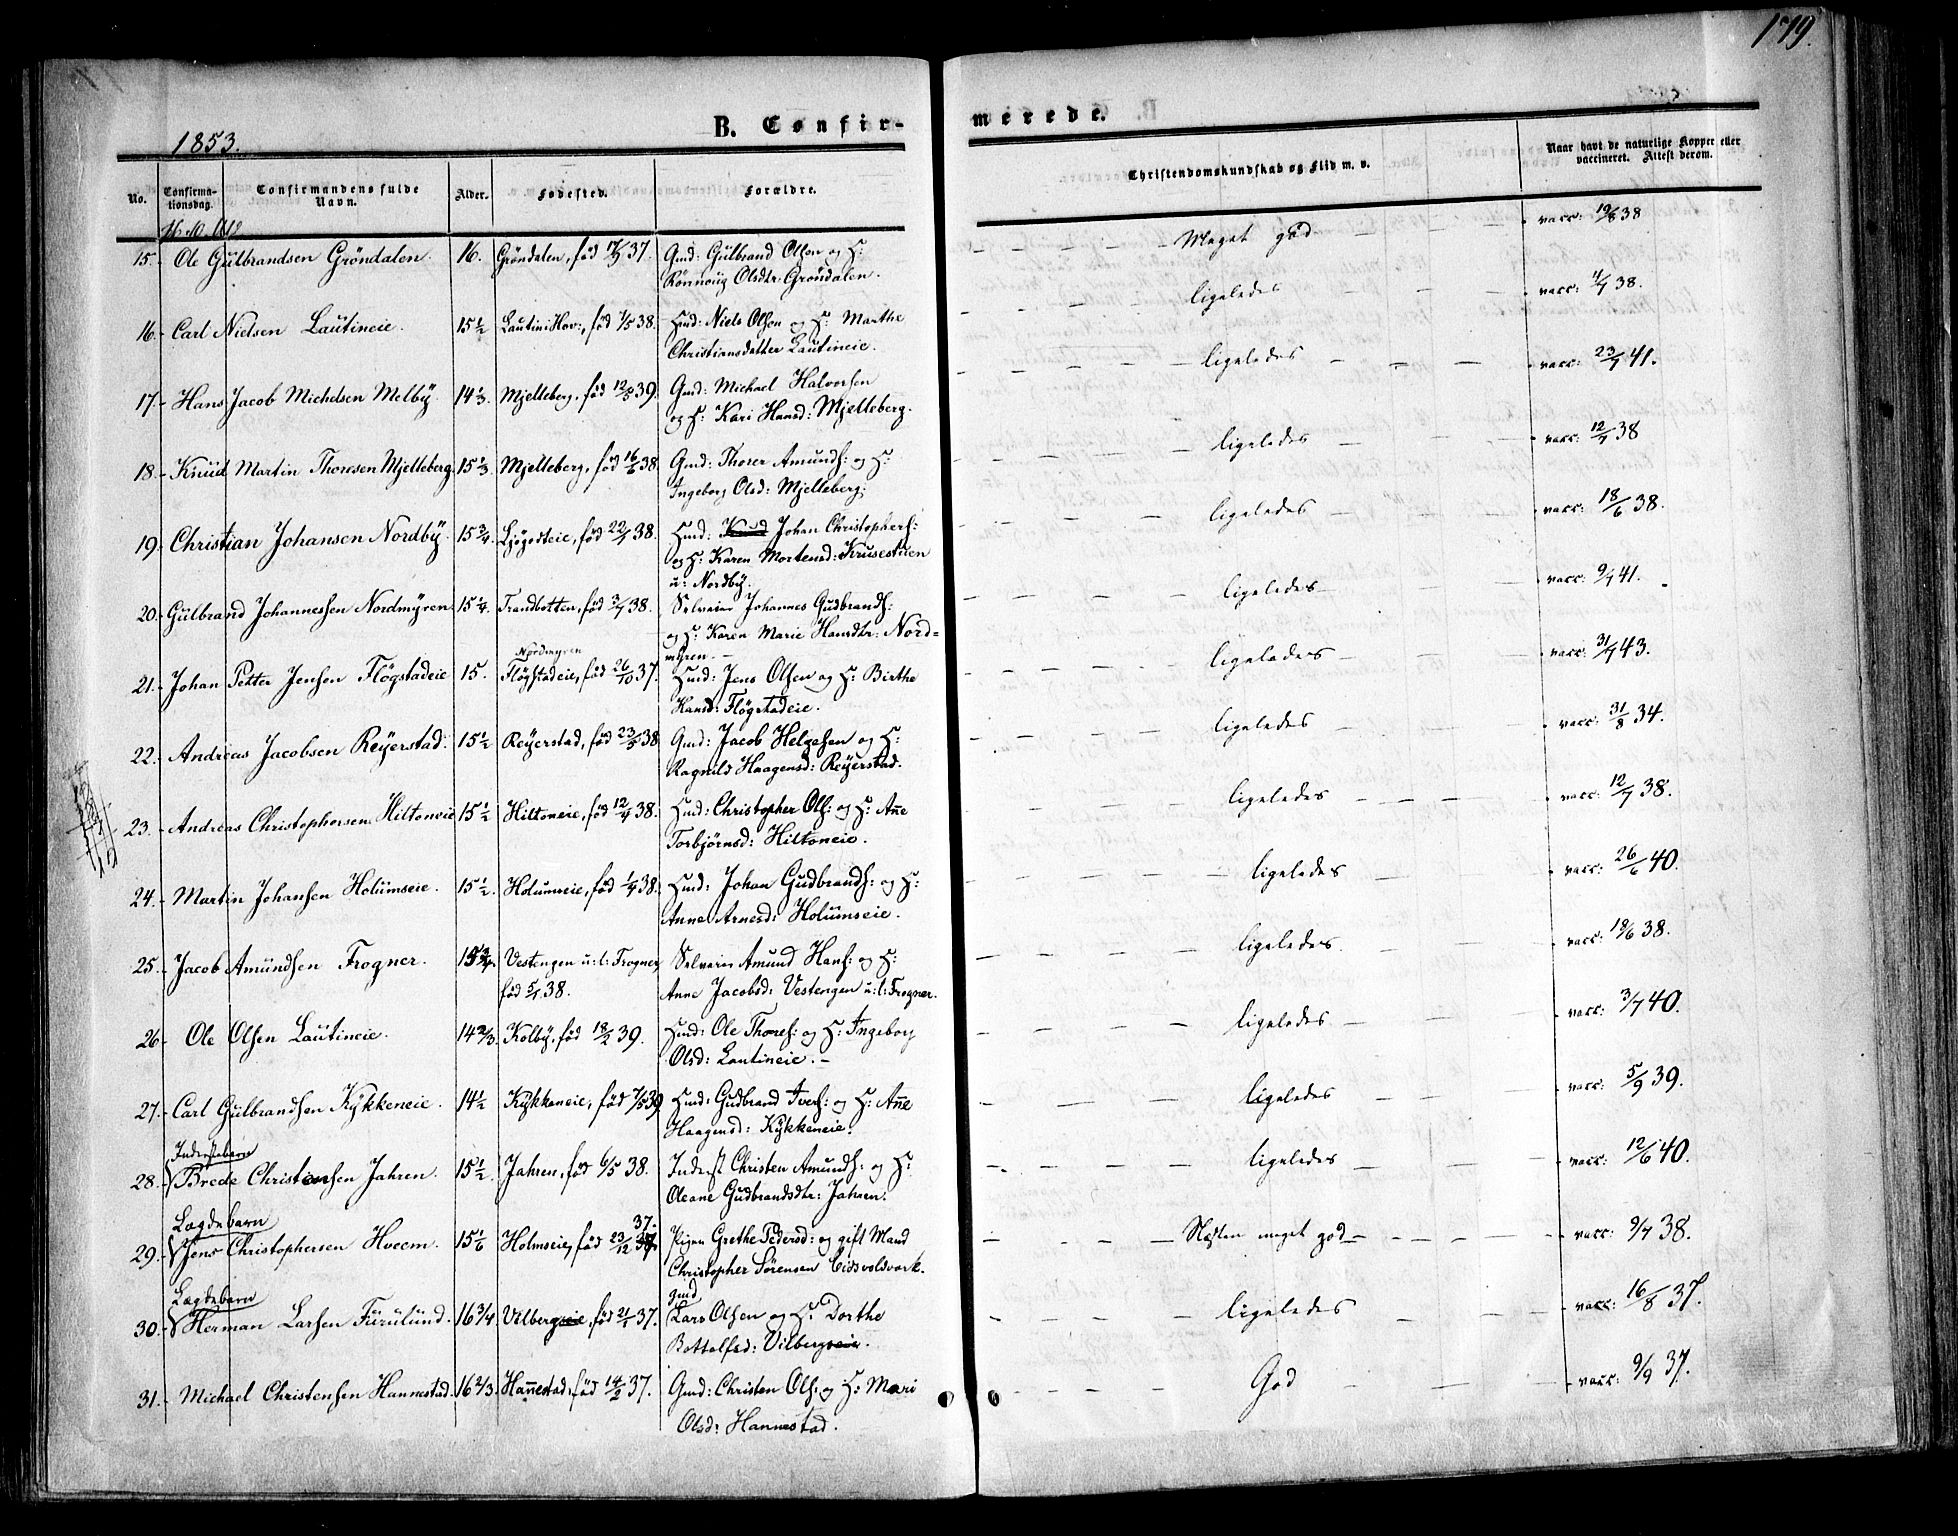 179.
B. Confirmerede.
1853.
No. Confirmationsdag. Confirmandens fulde Navn. Alder. Fødested. Forældre. Christendomskundskab og Flid m. v. Naar havt de naturlige Kopper eller vaccineret. Attest derom.
15. Ole Gulbrandsen Gröndalen. 16. Gröndalen, fød 37. Gmd: Gulbrand Olsen og H: Meget god vacc: 19/8 38
Rönnoug Olsdtr Gröndalen.
16. Carl Nielsen Lautineie. 15 1/2 Lautini Hov:, fød 1/5 38. Hmd: Niels Olsen og H: Marthe ligeledes vacc: 4/7 38.
Christiansdatter Lautineie.
17. Hans Jacob Michelsen Melby. 14 1/3. Mjelleberg, fød 12/5 39. Gmd: Michael Halvorsen ligeledes vacc: 23/7 41.
og H: Kari Hansd: Mjelleberg.
18. Knud Martin Thoresen Mjelleberg. 15 1/3. Mjelleberg, fød 16/6 38. Gmd: Thorer Amunds: og H: ligeledes vacc: 12/7 38
Ingeborg Olsd: Mjelleberg.
19. Christian Johansen Nordby. 15 3/4. Ljøgodteie, fød 22/1 38. Hmd: Knud Johan Christophers: ligeledes vacc: 18/6 38.
og H: Karen Mortensd: Krusestuen
u: Nordby.
20. Gulbrand Johannessen Nordmyren 15 1/4. Trandbotten, fød 3/7 38. Selveier Johannes Gudbrands: ligeledes vacc: 9/7 41.
og H: Karen Marie Hansdtr: Nord=
myren.
Nordmyren
21. Johan Petter Jensen Flögstadeie 15. Flögstadeie, fød 26/10 37. Hmd: Jens Olsen og H: Birthe ligeledes vacc: 31/7 43.
Hansd: Flögstadeie.
22. Andreas Jacobsen Reyerstad. 15 1/2 Reyerstad, fød 23/5 38 Gmd: Jacob Helgesen og H: ligeledes vacc: 31/8 34.
Ragnild Haagensd: Reyerstad.
23. Andreas Christophersen Hiltoneie 15 1/2 Hiltoneie, fød 12/4 38. Hmd: Christopher Ols: og H: Anne ligeledes vacc: 12/7 38.
Torbjörnsd: Hiltoneie.
24. Martin Johansen Holumseie. 15 1/2. Holumseie, fød 1/4 38. Hmd: Johan Gudbrands: og H: ligeledes vacc: 26/6 40.
Anne Arnesd: Holumseie.
25. Jacob Amundsen Frogner. 15 3/4. Vestengen u:l: Frogner, Selveier Amund Hans: og H: ligeledes. vacc: 18/6 38.
fød 5/1 38. Anne Jacobsd: Vestengen u:l: Frogner.
26. Ole Olsen Lautineie. 14 2/3. Kolby, fød 18/2 39. Hmd: Ole Thores: og H: Ingeborg ligeledes vacc: 3/7 40.
Olsd: Lautineie.
27. Carl Gulbrandsen Kykkeneie. 14 1/2 Kykkeneie, fød 7/5 39 Hmd: Gudbrand Ivers: og H: Anne ligeledes vacc: 5/9 39.
Haagensd: Kykkeneie.
Inderstebarn
28. Brede Christensen Jahren. 15 1/2. Jahren, fød 6/5 38. Inderst Christen Amunds: og H: ligeledes vacc: 12/6 40.
Oleane Gudbrandsdtr: Jahren.
Lægdebarn
37.
29. Jens Christophersen Hveem. 15 1/6 Holmseie, fød 23/12 37 Pigen Grethe Pedersd: og gift Mand Næsten meget god vacc: 9/7 38.
Christopher Sörensen Eidsvoldværk.
Lægdebarn
gmd
30. Herman Larsen Furulund. 16 3/4 Vilbergseie, fød 21/1 37. Lars Olsen og H: Dorthe ligeledes vacc: 16/8 37.
Bottolfsd: Vilbergseie.
31. Michael Christensen Hannestad. 16 2/3. Hannestad, fød 14/2 37. Gmd: Christen Ols: og H: Mari God vacc: 9/9 37.
Olsd: Hannestad.